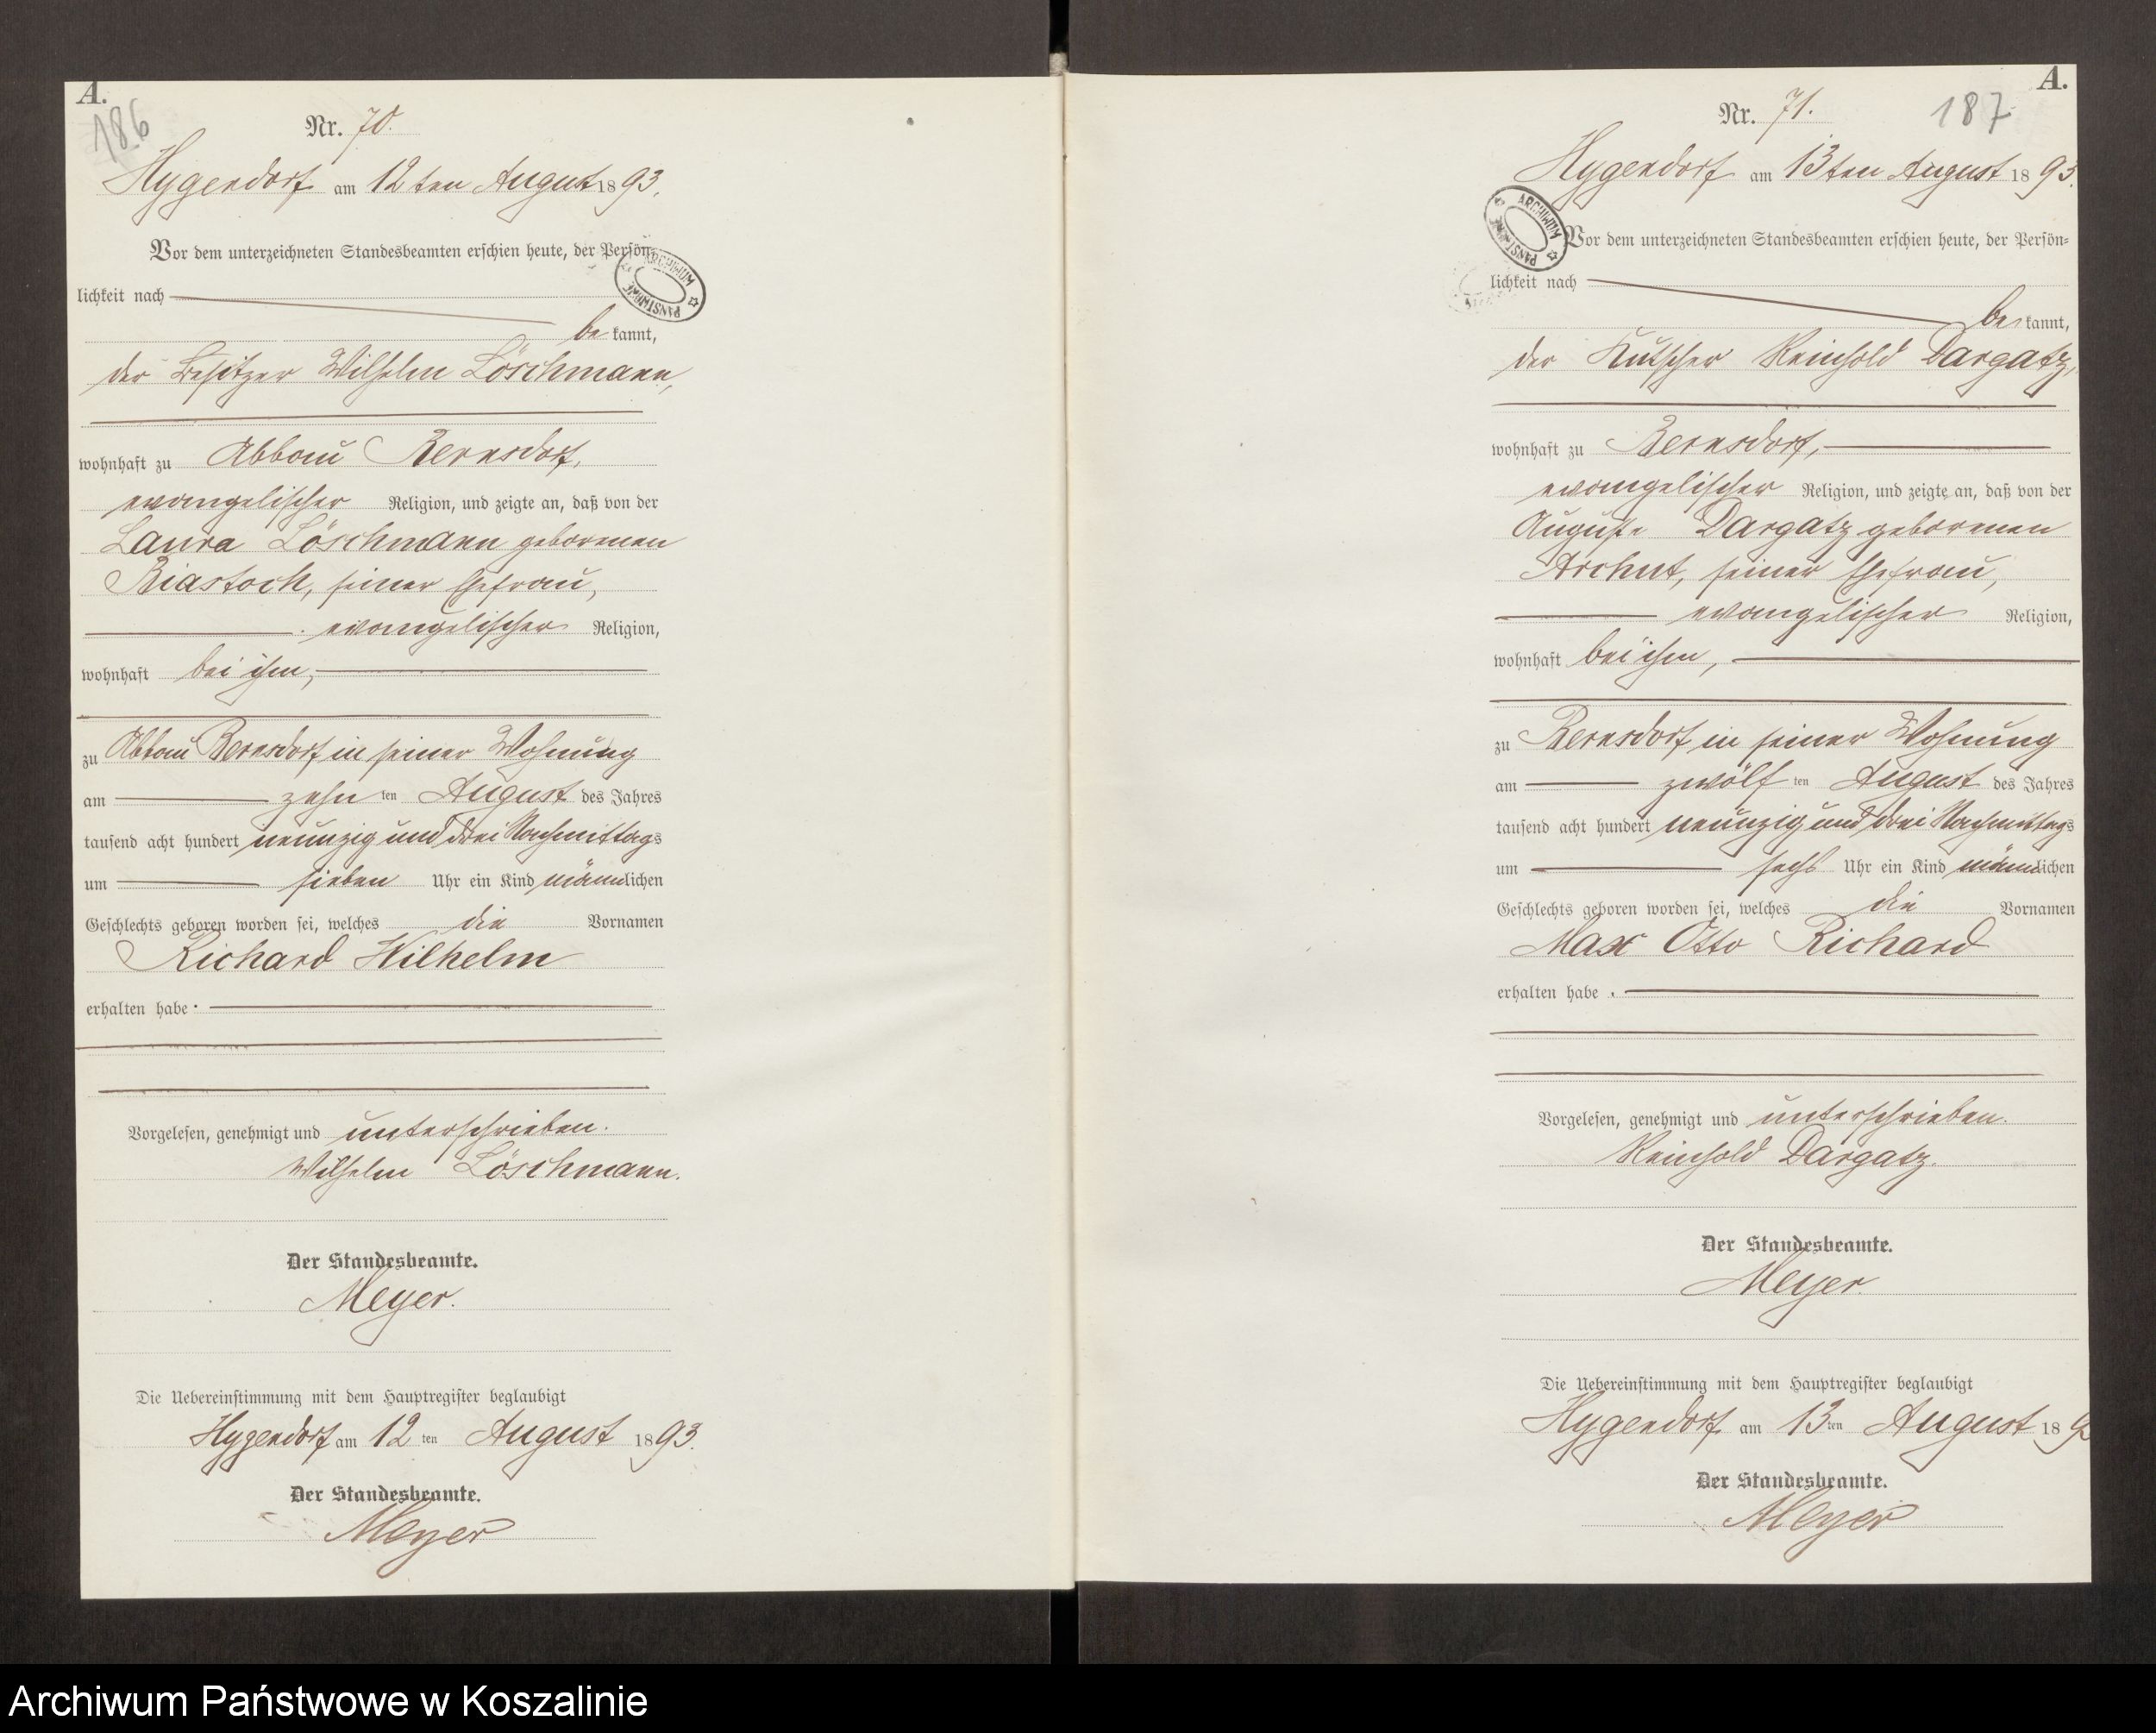 A.
186
Nr. 70.
Hygendorf am 12ten August 1893.
Vor dem unterzeichneten Standesbeamten erschien heute, der Persön-
lichkeit nach
be kannt,
der Besitzer Wilhelm Löschmann,
wohnhaft zu Abbau Bernsdorf,
evangelischer Religion, und zeigte an, daß von der
Laura Löschmann geborenen
Biastoch, seiner Ehefrau,
evangelischer Religion,
wohnhaft bei ihm,
zu Abbau Bernsdorf in seiner Wohnung
am zehn ten August des Jahres
tausend acht hundert neunzig und drei Nachmittags
um sieben Uhr ein Kind männlichen
Geschlechts geboren worden sei, welches die Vornamen
Richard Wilhelm
erhalten habe.
Vorgelesen, genehmigt und unterschrieben.
Wilhelm Löschmann.
Der Standesbeamte.
Meyer.
Die Uebereinstimmung mit dem Hauptregister beglaubigt
Hygendorf am 12 ten August 1893.
Der Standesbeamte.
Meyer
ARCHIWUM PAŃSTWOWE
A.
187
Nr. 71.
Hygendorf am 13ten August 1893.
ARCHIWUM PAŃSTWOWE
Vor dem unterzeichneten Standesbeamten erschien heute, der Persön-
lichkeit nach
be kannt,
der Kutscher Reinhold Dargatz,
wohnhaft zu Bernsdorf,
evangelischer Religion, und zeigte an, daß von der
Auguste Dargatz geborenen
Archut, seiner Ehefrau,
evangelischer Religion,
wohnhaft bei ihm,
zu Bernsdorf, in seiner Wohnung
am zwölf ten August des Jahres
tausend acht hundert neunzig und drei Nachmittags
um sechs Uhr ein Kind männlichen
Geschlechts geboren worden sei, welches die Vornamen
Max Otto Richard
erhalten habe.
Vorgelesen, genehmigt und unterschrieben.
Reinhold Dargatz.
Der Standesbeamte.
Meyer.
Die Uebereinstimmung mit dem Hauptregister beglaubigt
Hygendorf am 13 ten August 189
Der Standesbeamte.
Meyer
Archiwum Państwowe w Koszalinie